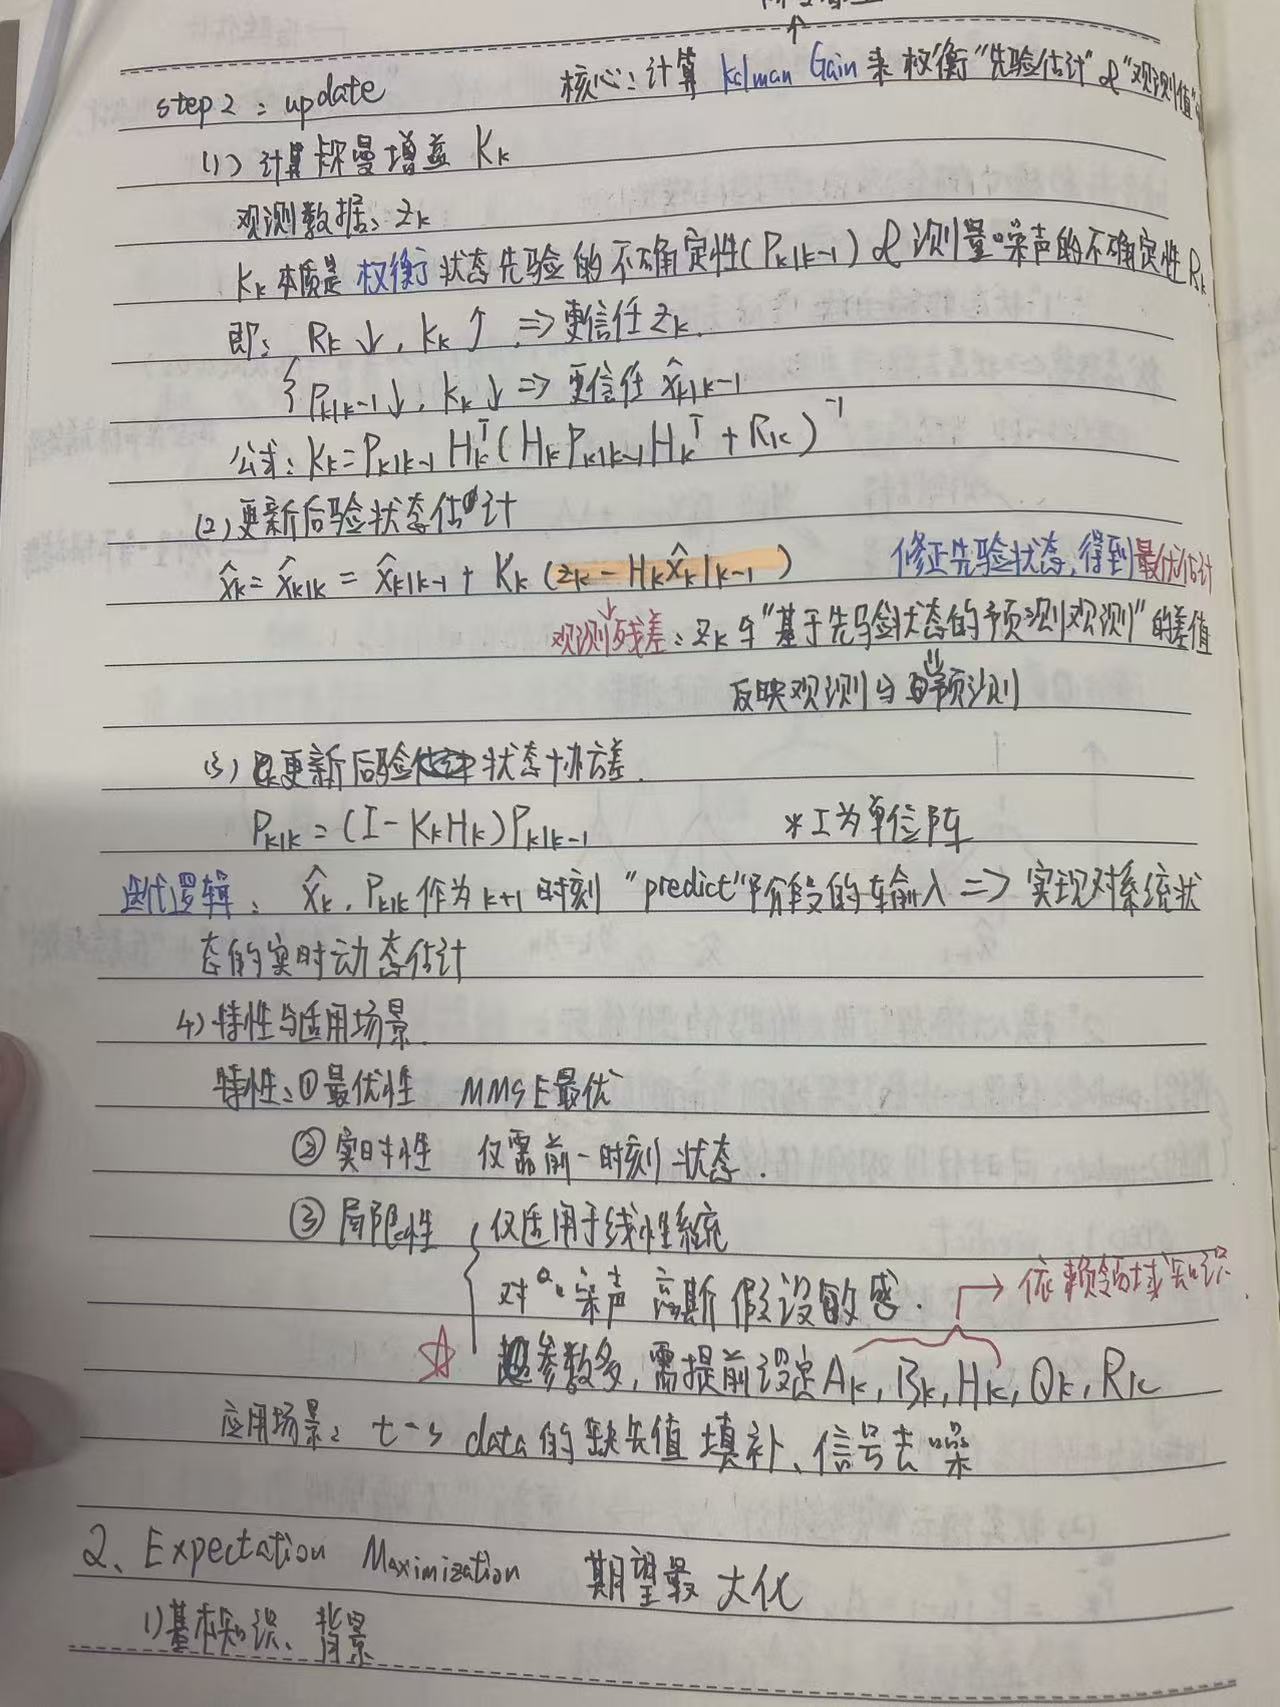 step2：update 核心：计算 Kalman Gain 来权衡“先验估计”&“观测值”
(1) 计算卡尔曼增益 Kₖ
观测数据：zₖ
Kₖ本质是权衡状态先验的不确定性(Pₖ|ₖ₋₁)&测量噪声的不确定性Rₖ
即：Rₖ↓，Kₖ↑ ⇒ 更信任 zₖ.
{ Pₖ|ₖ₋₁↓，Kₖ↓ ⇒ 更信任 x̂ₖ|ₖ₋₁
公式：Kₖ=Pₖ|ₖ₋₁Hₖᵀ(HₖPₖ|ₖ₋₁Hₖᵀ+Rₖ)⁻¹
(2) 更新后验状态估计
x̂ₖ=x̂ₖ|ₖ=x̂ₖ|ₖ₋₁+Kₖ(zₖ-Hₖx̂ₖ|ₖ₋₁) 修正先验状态，得到最优估计
↓
观测残差：zₖ与“基于先验状态的预测观测”的差值
⇓
反映观测与预测
(3) 更新后验状态协方差.
Pₖ|ₖ=(I-KₖHₖ)Pₖ|ₖ₋₁ *I为单位阵
迭代逻辑：x̂ₖ，Pₖ|ₖ作为k+1时刻“predict”阶段的输入⇒实现对系统状
态的实时动态估计
4) 特性与适用场景.
特性：①最优性 MMSE最优
②实时性 仅需前一时刻状态.
③局限性 { 仅适用于线性系统
对 噪声 高斯假设敏感. → 依赖领域知识.
☆ 超参数多，需提前设定Aₖ, Bₖ, Hₖ, Qₖ, Rₖ
应用场景：t-s data的缺失值填补、信号去噪
2、Expectation Maximization 期望最大化
1) 基本知识、背景